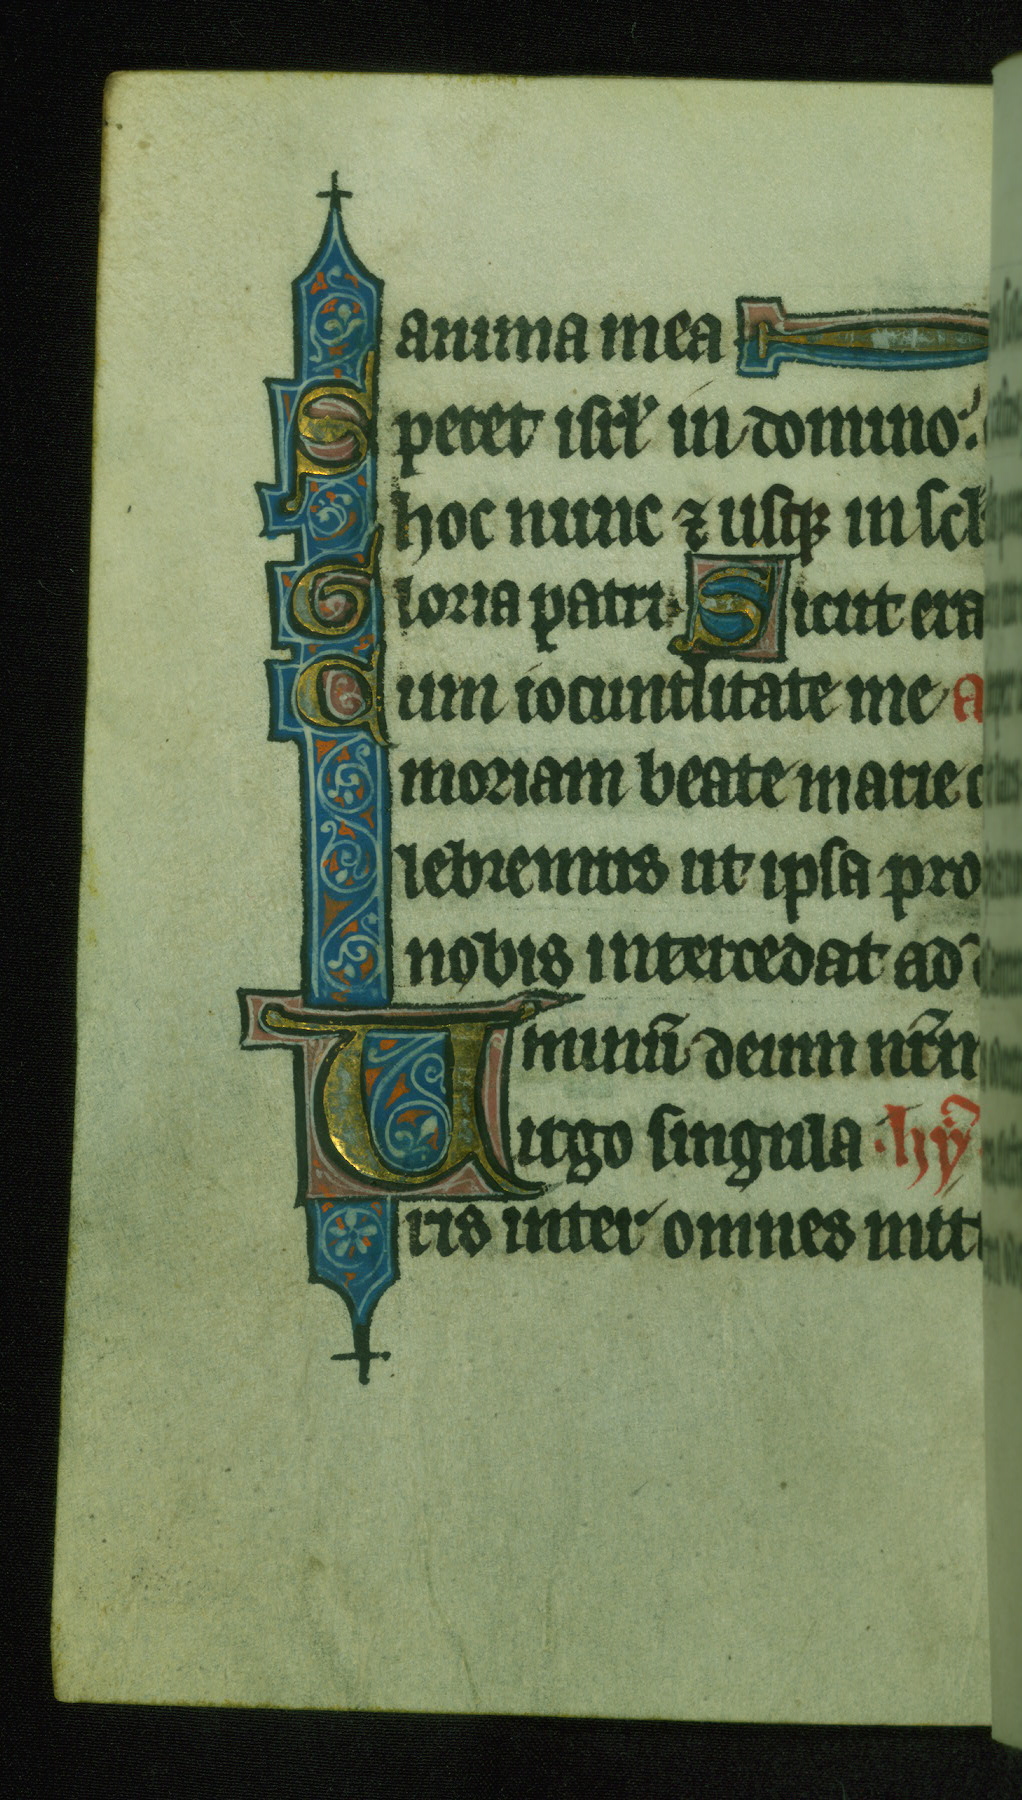 anima mea
Speret isrl' in domino:
hoc nunc ⁊ usq; in scl
Gloria patri. Sicut era
Cum iocunditate me a
moriam beate marie c
lebremus ut ipsa pro
nobis intercedat ad d
minū deum nr̄m
Virgo singula hȳ
ris inter omnes mit